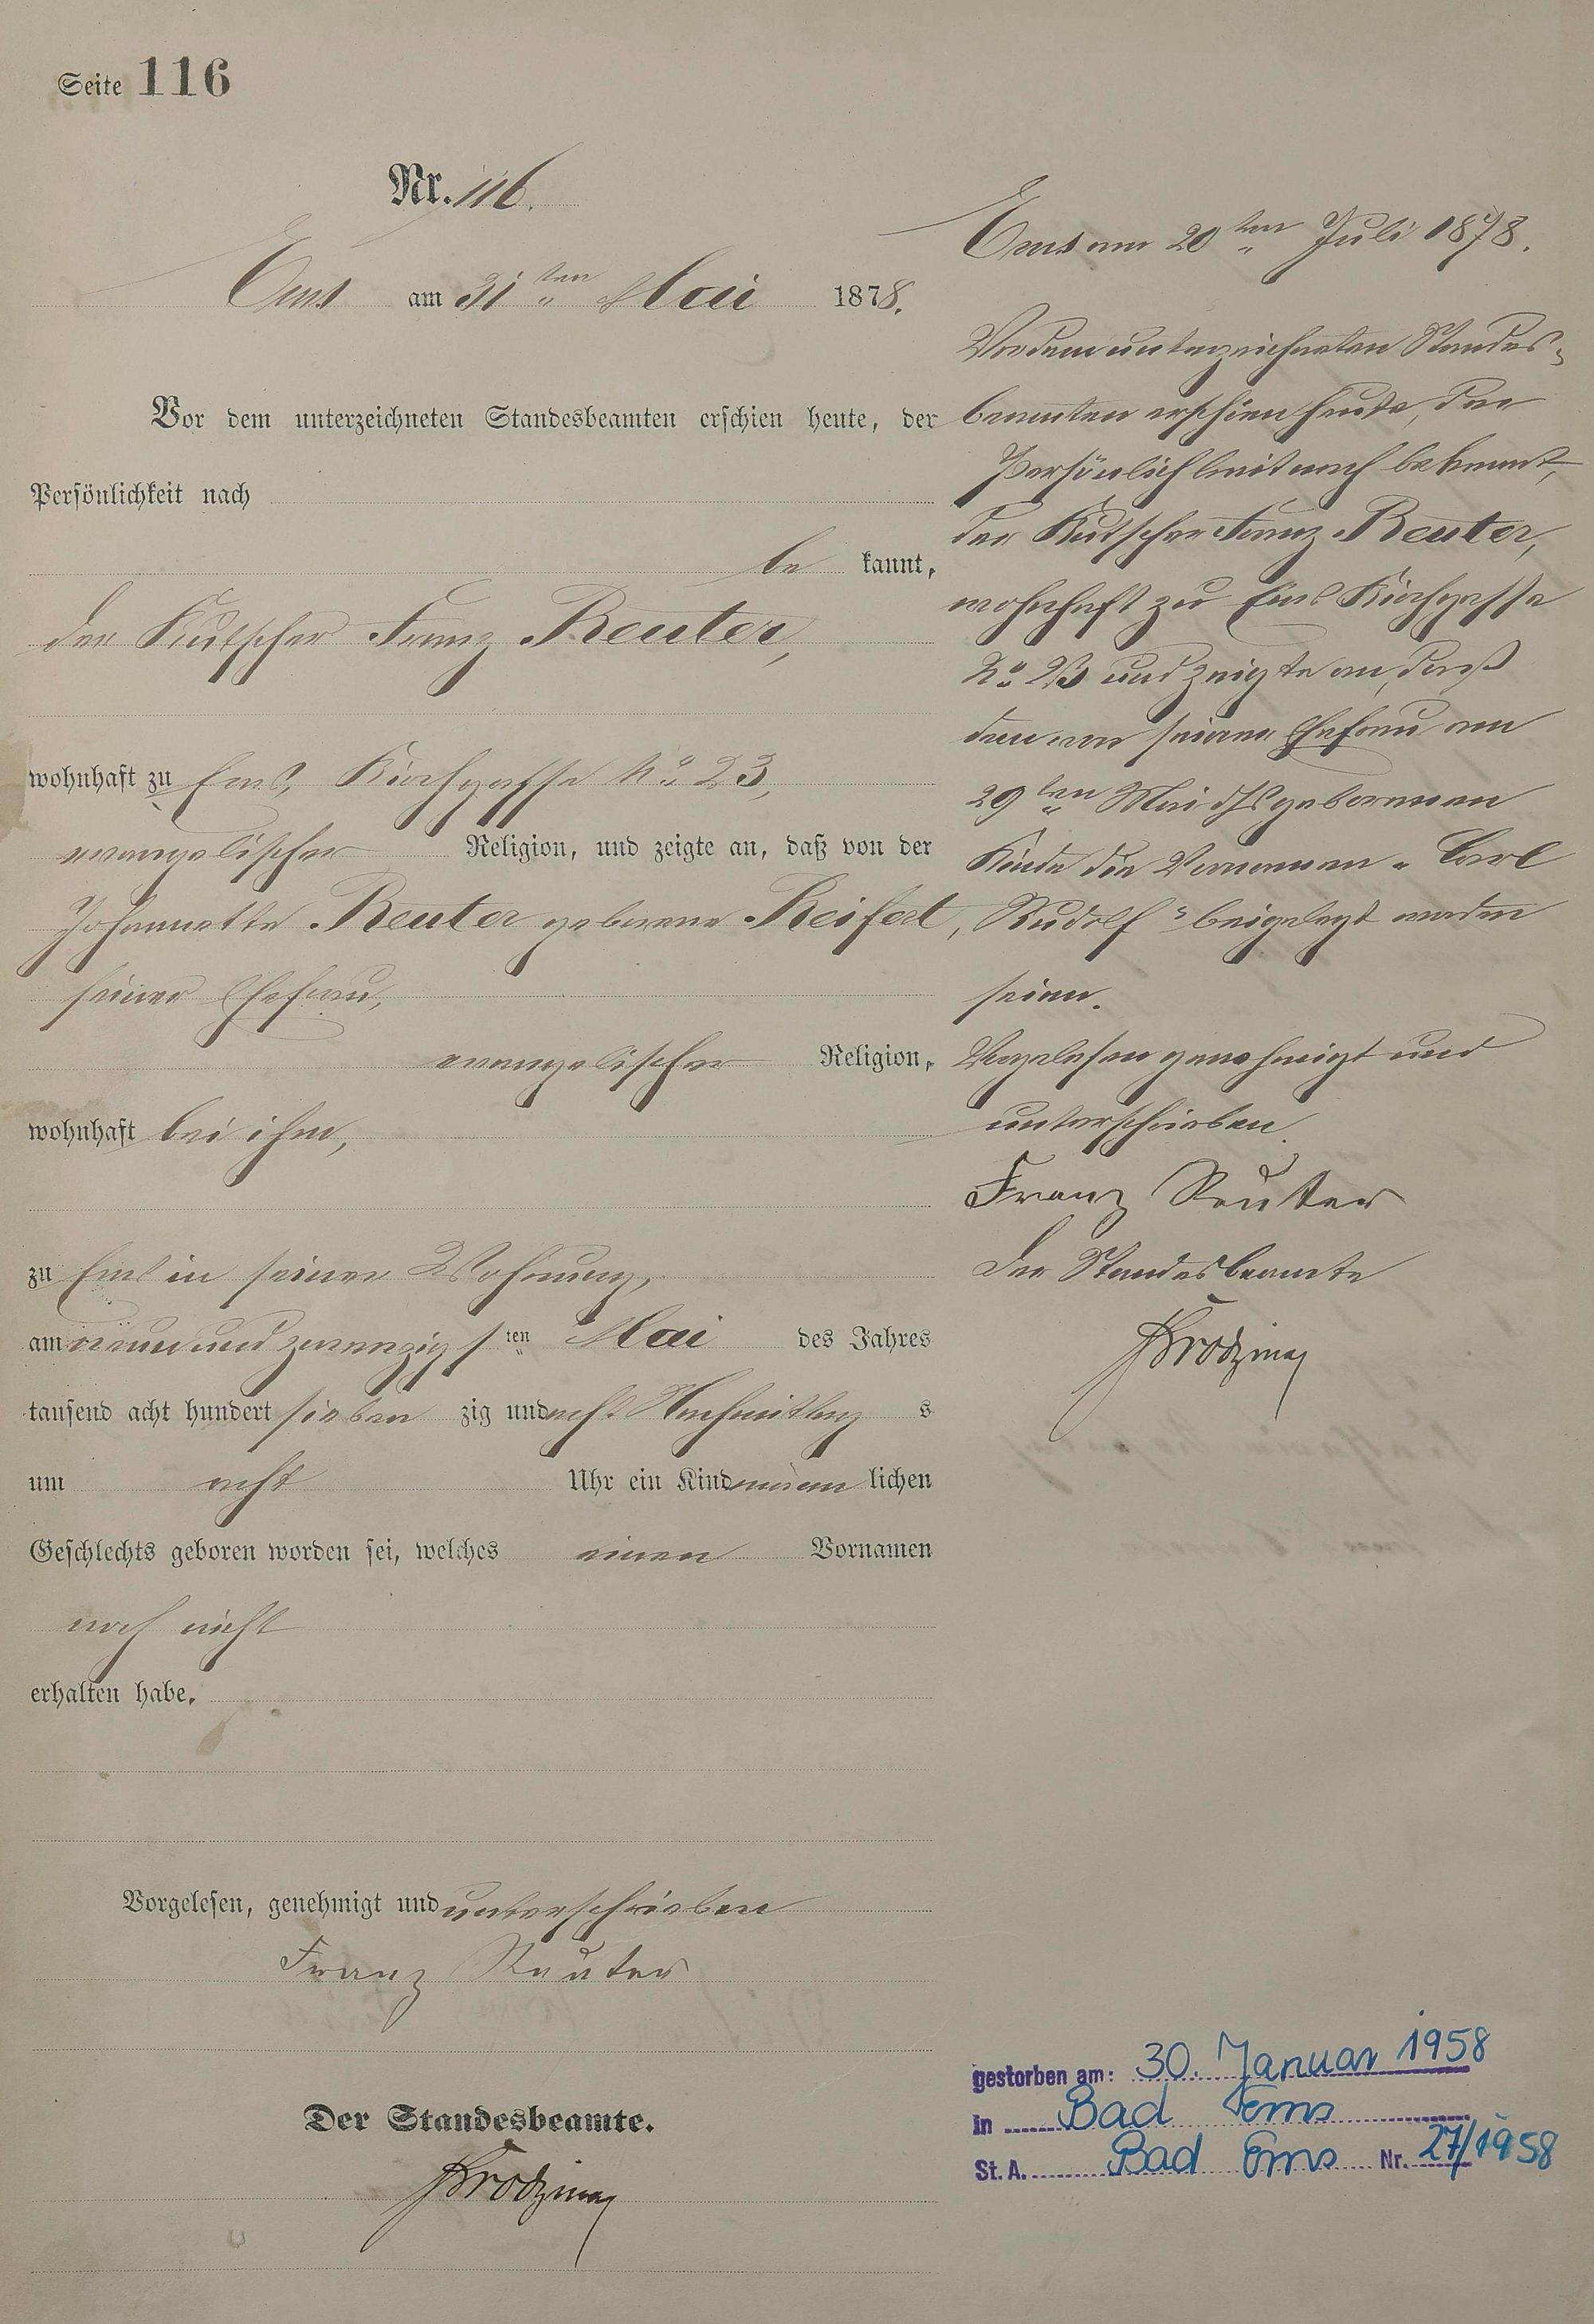 Seite 116
Nr. 116.
Ems am 31ten Mai 1878.
Vor dem unterzeichneten Standesbeamten erschien heute, der
Persönlichkeit nach
be kannt,
der Kutscher Franz Reuter,
wohnhaft zu Ems, Kirchgasse No 23,
evangelischer Religion, und zeigte an, daß von der
Johannette Reuter geborene Reifert,
seiner Ehefrau,
evangelischer Religion,
wohnhaft bei ihm,
zu Ems in seiner Wohnung,
am neun und zwanzigsten Mai des Jahres
tausend acht hundert sieben zig und acht Nachmittag s
um acht Uhr ein Kind männ lichen
Geschlechts geboren worden sei, welches einen Vornamen
noch nicht
erhalten habe.
Vorgelesen, genehmigt und unterschrieben
Franz Reuter
Der Standesbeamte.
Ems am 20ten Juli 1878.
Vor dem unterzeichneten Standes-
beamten erschien heute, der
Persönlichkeit nach bekannt,
der Kutscher Franz Reuter,
wohnhaft zu Ems Kirchgasse
No 23 und zeigte an, daß
dem von seiner Ehefrau am
29ten Mai d Js geborenen
Kinde die Vornamen „Carl
Rudolf" beigelegt worden
seien.
Vorgelesen genehmigt und
unterschrieben.
Franz Reuter
Der Standesbeamte
gestorben am: 30. Januar 1958
in Bad Ems
St. A. Bad Ems Nr. 27/1958